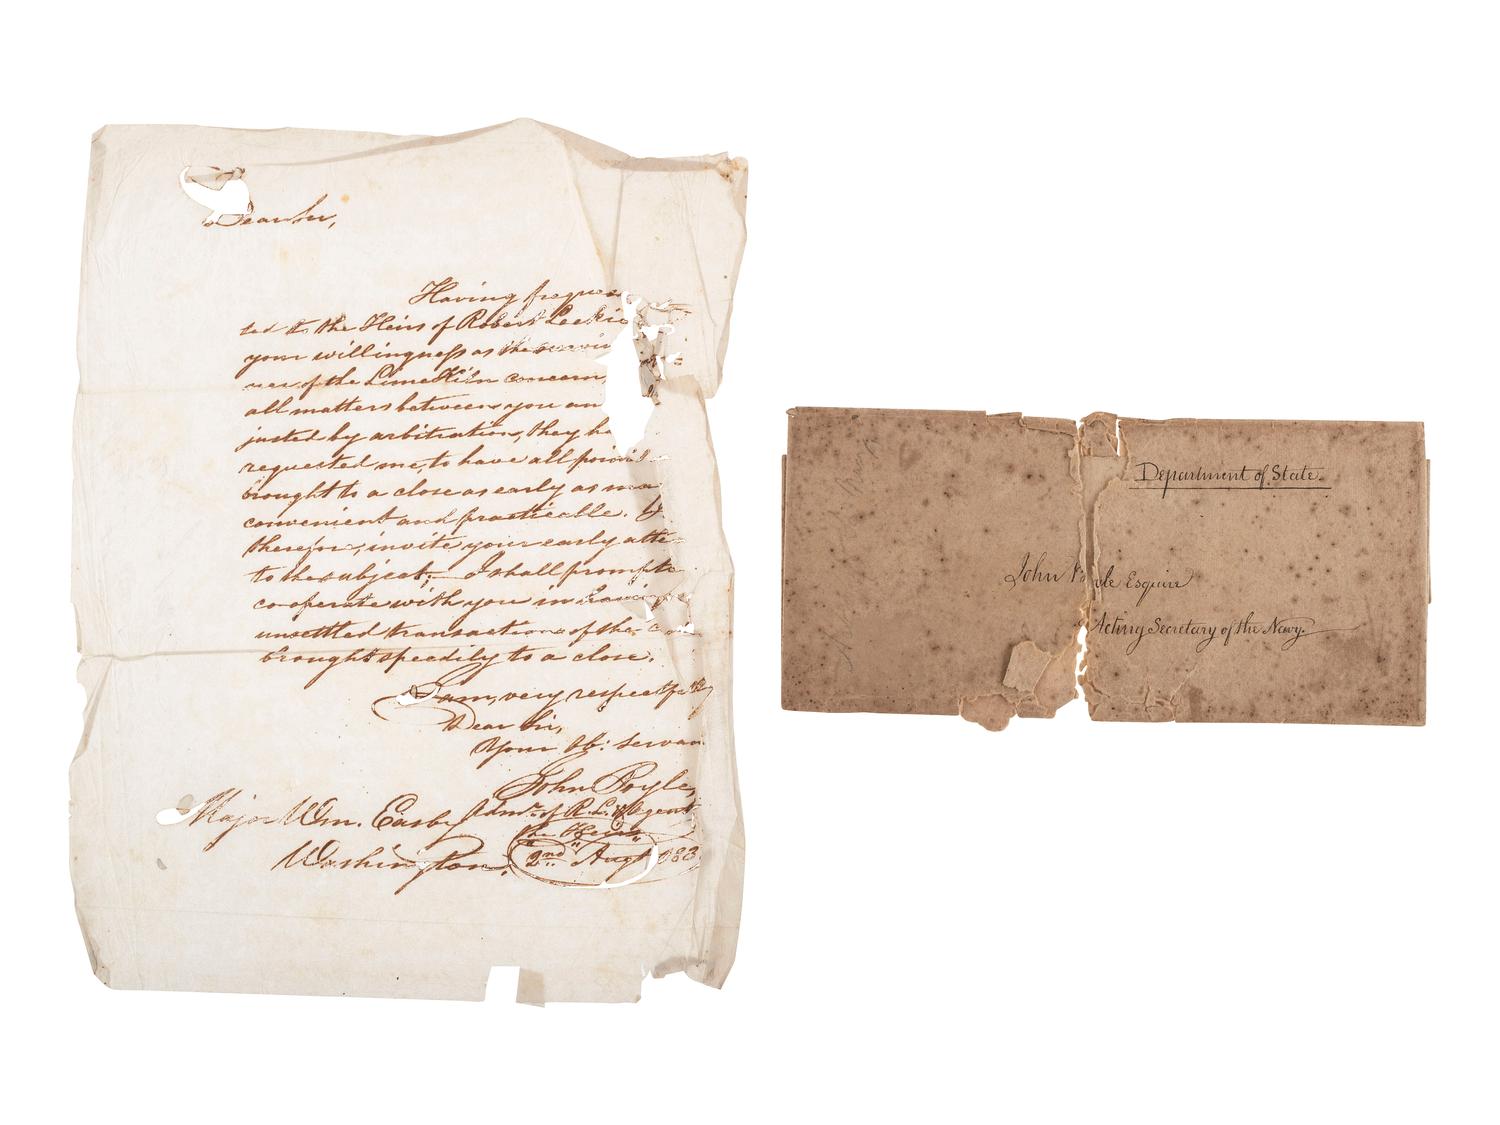 Dear Sir,
Having freque
ted to the Heirs of Robert Leckie
your willingness as the
ner of the Lime Kiln concern,
all matters between you an
justed by arbitration, they ha
requested me, to have all
brought to a close as early as ma
convenient and practicable. I
therefore, invite your early atte
to the subject; I shall prompt
co-operate with you in having
unsettled transactions of the
brought speedily to a close.
I am, very respectfully
Dear Sir,
Your Ob: Servan
John Boyle,
Major Wm. Easby Adm.r of R. L. & Agent
the Heirs
Washington. 2nd Augt
Department of State.
John Boyle Esquire
Acting Secretary of the Navy.